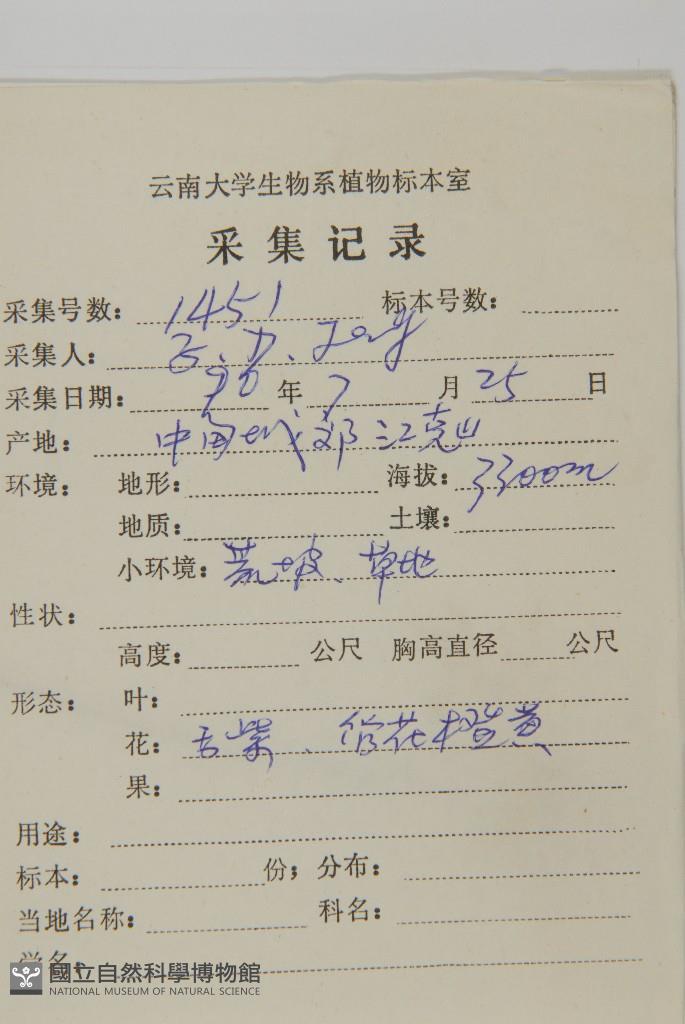 云南大学生物系植物标本室
采集记录
采集号数： 1451 标本号数：
采集人：
采集日期： 90 年 7 月 25 日
产地： 中甸 邓 江克山
环境： 地形： 海拔： 3300m
地质： 土壤：
小环境： 荒坡、草地
性状：
高度： 公尺 胸高直径 公尺
形态： 叶：
花： 舌紫、筒花橙黄
果：
用途：
标本： 份；分布：
当地名称： 科名：
学名：
國立自然科學博物館
NATIONAL MUSEUM OF NATURAL SCIENCE